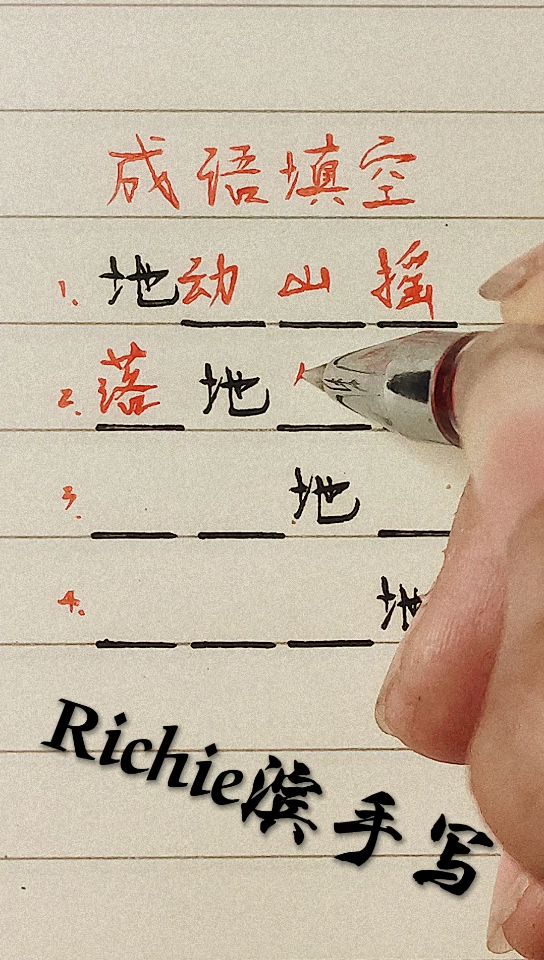 成语填空
1. 地动山摇
2. 落地
3. 地
4. 地
Richie滨手写